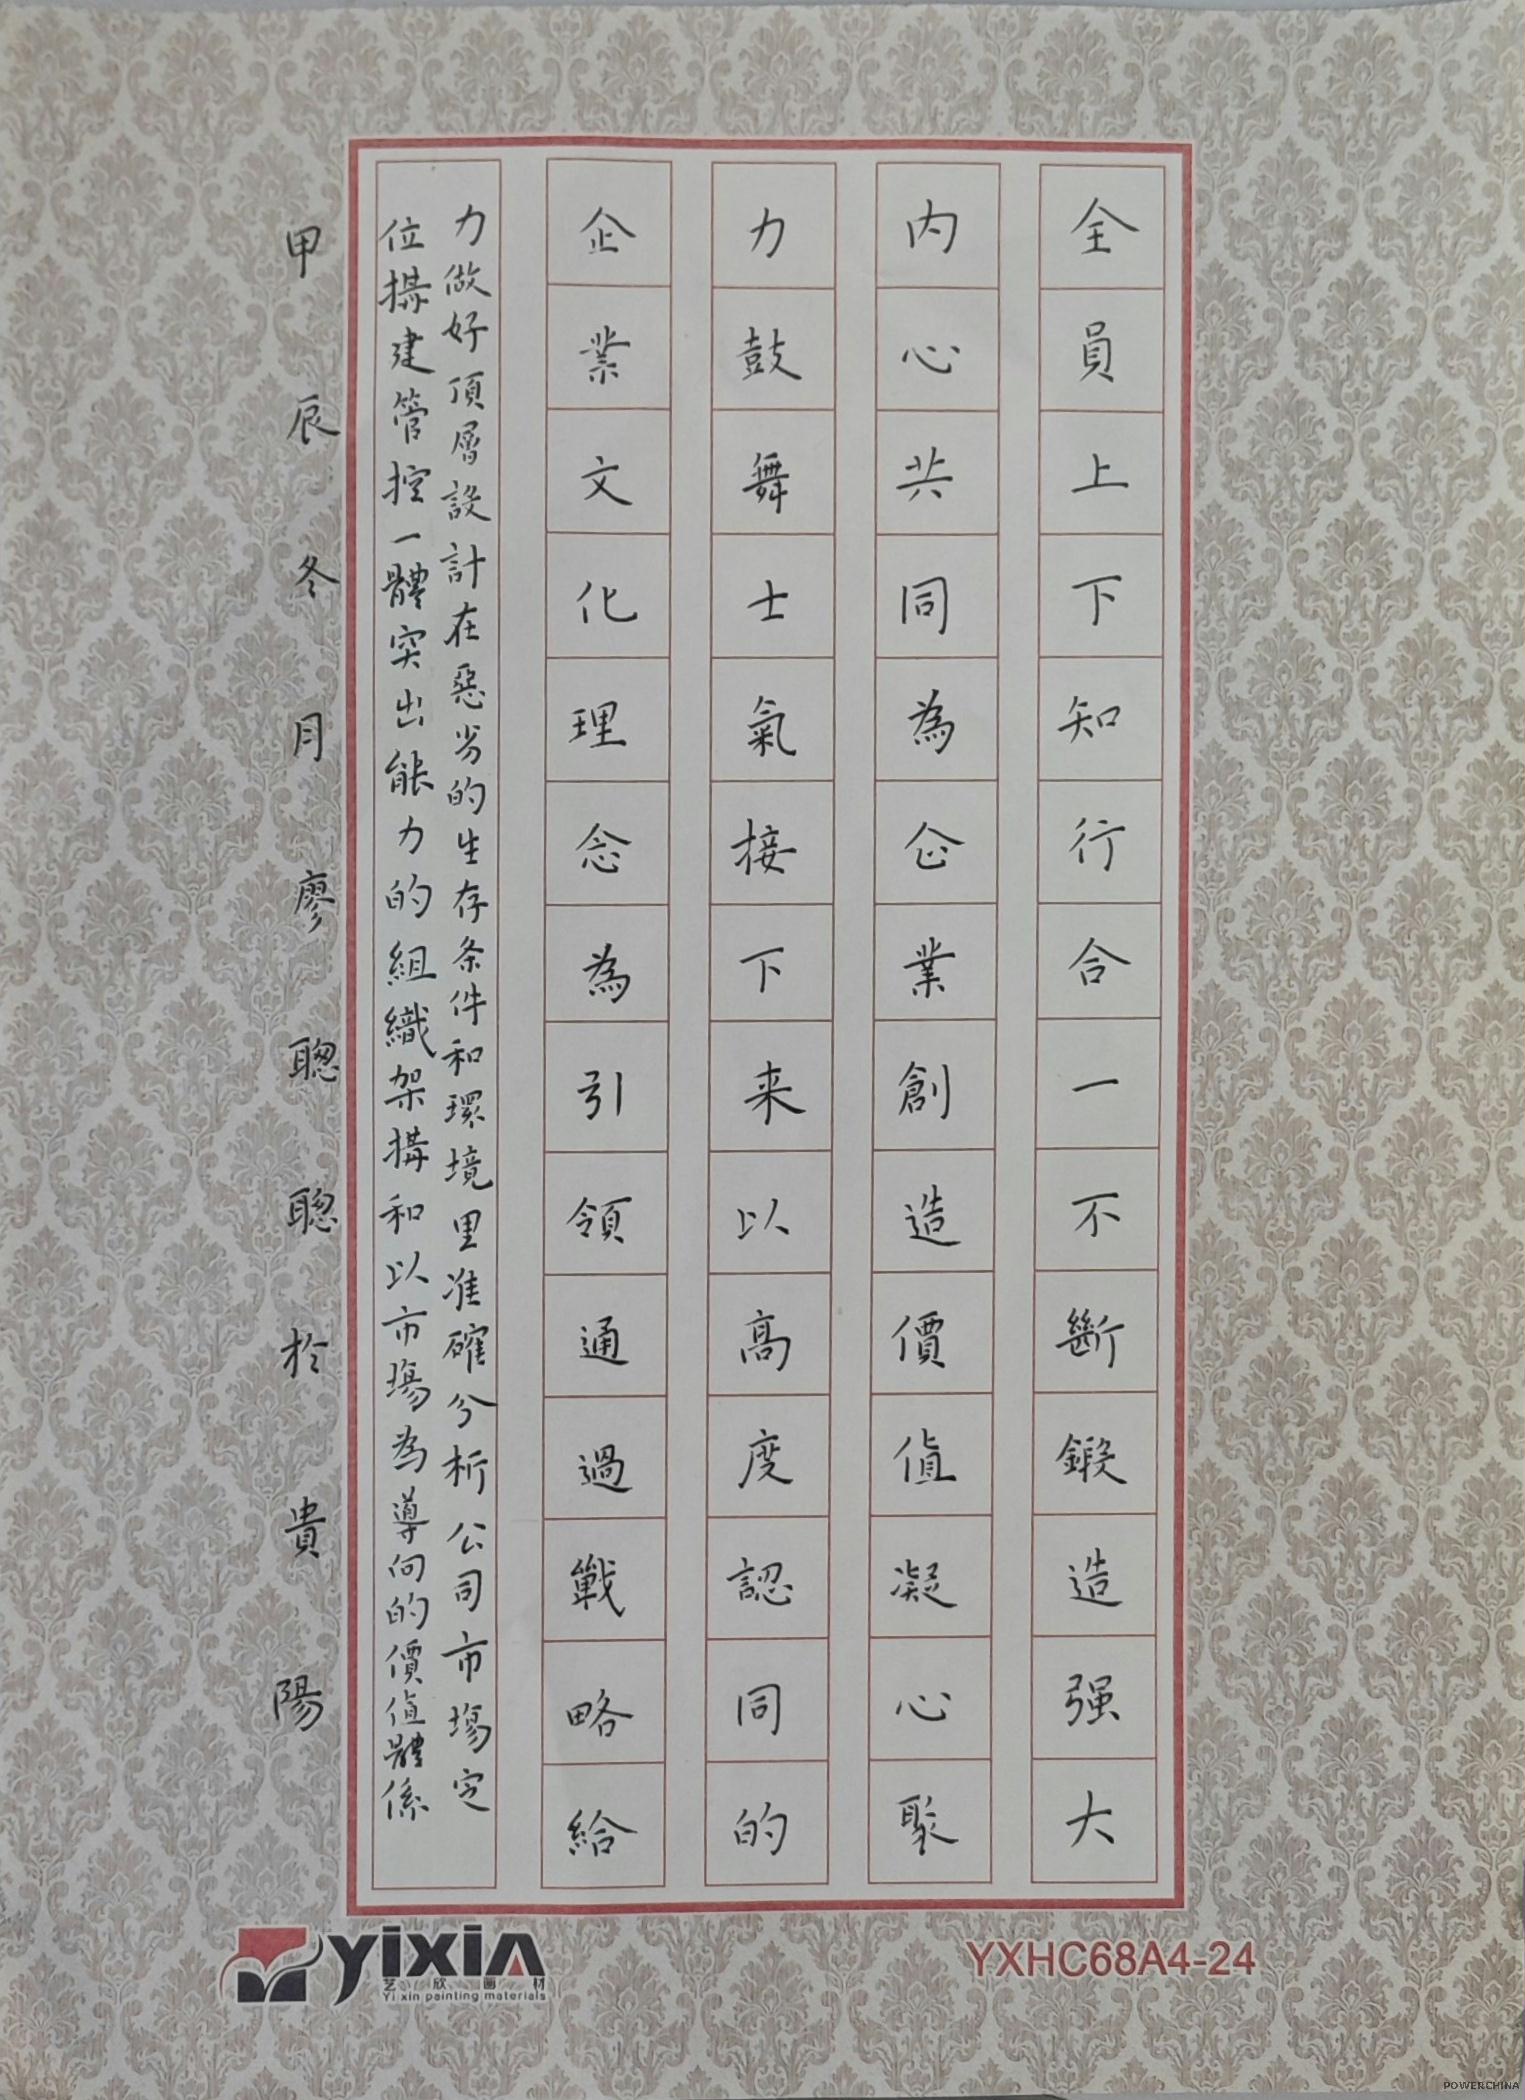 全員上下知行合一不斷鍛造强大
内心共同為企業創造價值凝心聚
力鼓舞士氣接下来以高度認同的
企業文化理念為引領通過戰略給
力做好頂層設計在惡劣的生存条件和環境里准確分析公司市場定
位搭建管控一體突出能力的組織架構和以市場為導向的價值體係
甲辰冬月廖聰聰於貴陽
yixin
艺欣画材
Yi xin painting materials
YXHC68A4-24
POWERCHINA